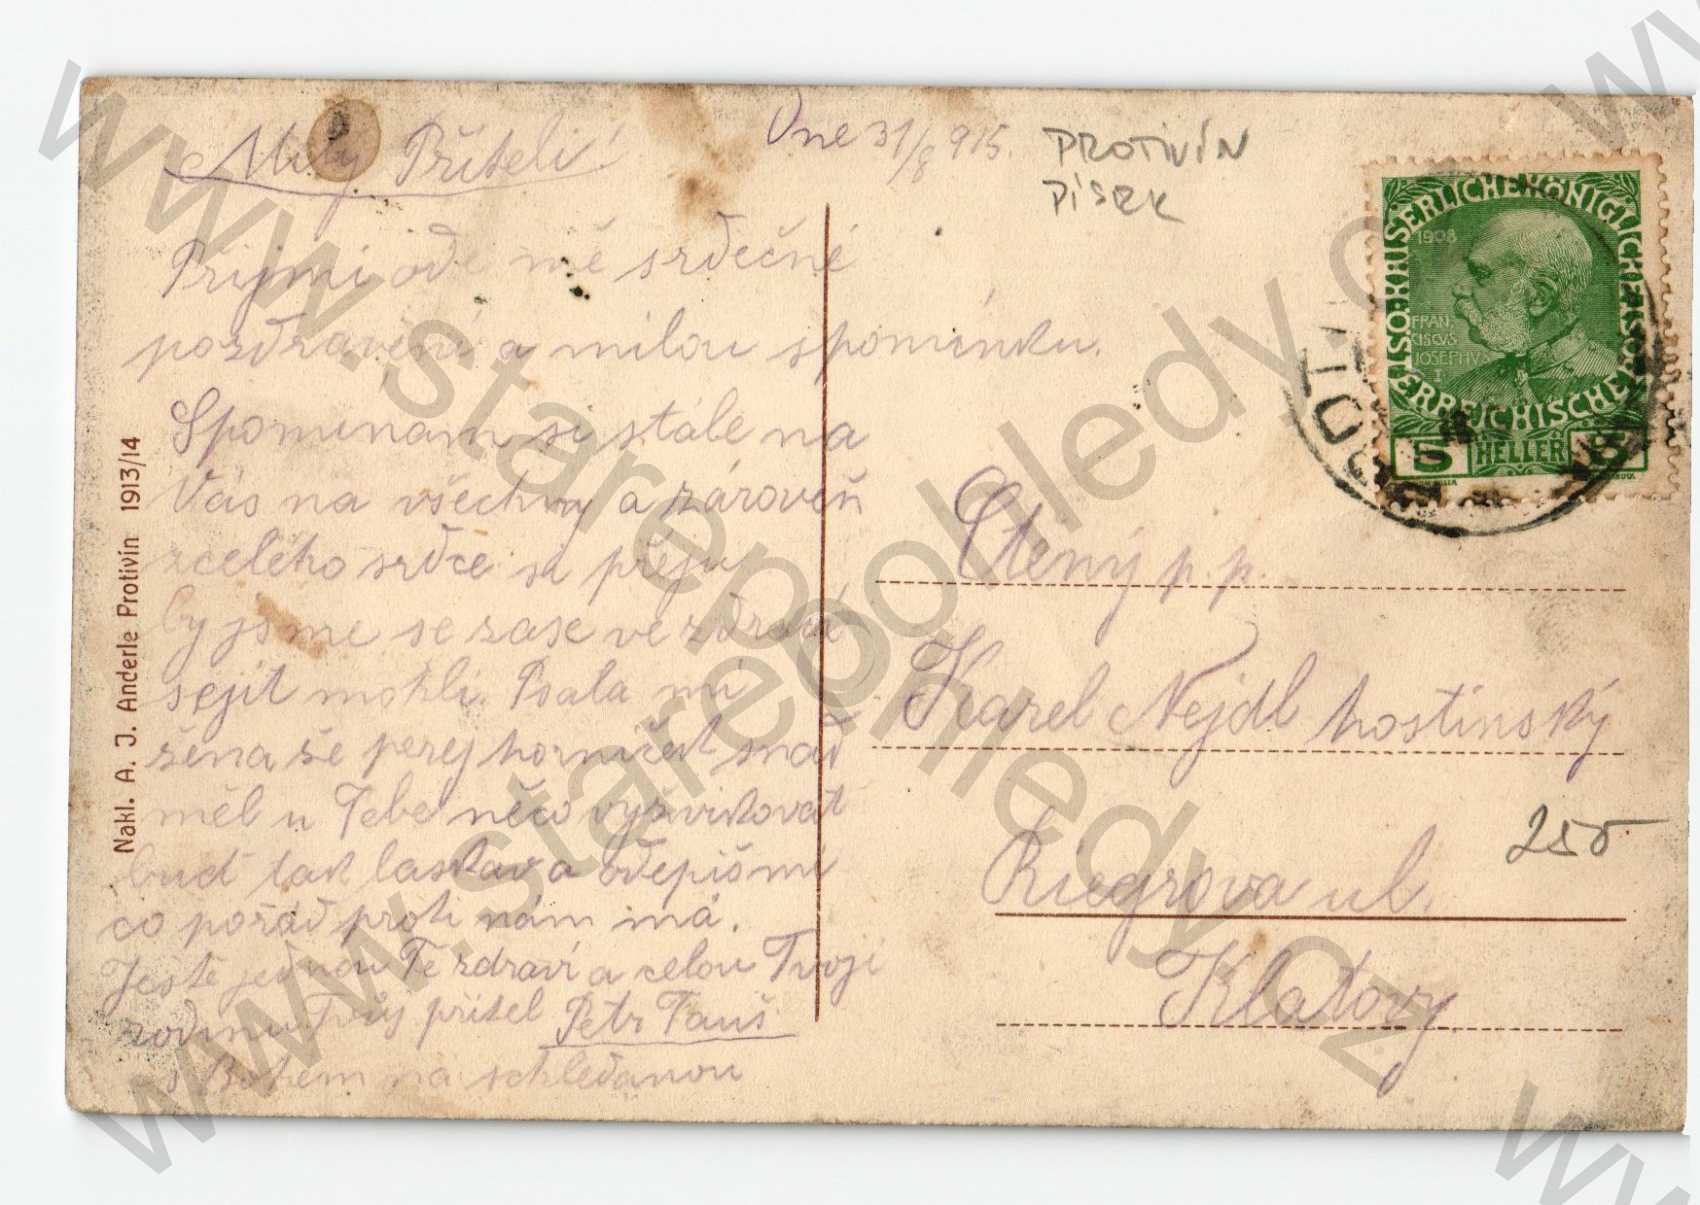 Dne 31/8 915.
PROTIVÍN
PÍSEK
Milý Příteli!
Přijmi ode mě srdečné
pozdravení a milou spomínku.
Spomínám si stále na
Vás na všechny a zároveň
z celého srdce si přeju
by jsme se zase ve zdraví
sejít mohli. Psala mi
žena že perej horničest snad
měl u Tebe něco vyzvikovat
buď tak laskav a odepiš mi
co pořád proti nám má.
Ještě jednou Te zdraví a celou Tvoji
rodinu Tvůj přítel Petr Tauš
s Bohem na schledanou
Nakl. A. J. Anderle Protivín 1913/14
KAISERLICHE KÖNIGLICHE ÖSTERREICHISCHE
1908
FRAN
CISCVS
JOSEPHVS
I
5 HELLER 5
Ctěný p. p.
Karel Nejdl hostinský
Riegrova ul.
Klatovy
255
www.starepohledy.cz
www.starepohledy.cz